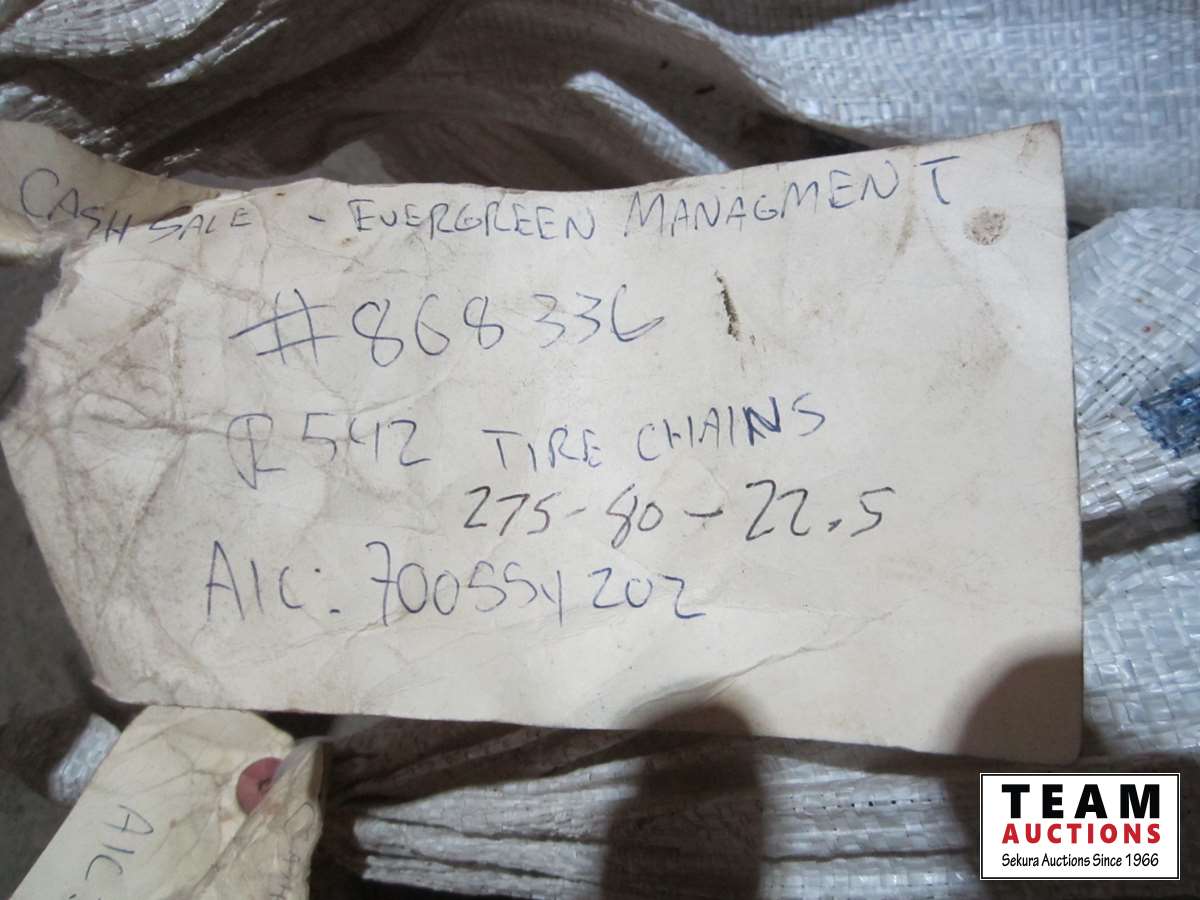 CASH SALE - EVERGREEN MANAGMENT
#868336
R542 TIRE CHAINS
275-80-22.5
A/C: 700554202
A/C:
TEAM
AUCTIONS
Sekura Auctions Since 1966